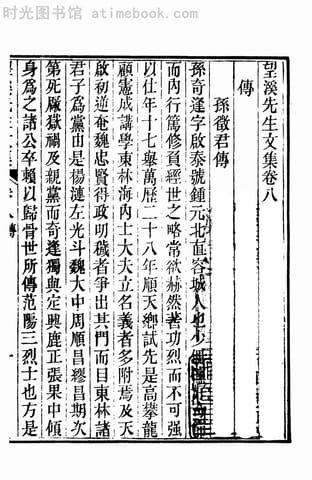 时光图书馆 - atimebook.com
望溪先生文集卷八
傳
孫徵君傳
孫奇逢字啟泰號鍾元北直容城人也少
而內行篤修負經世之略常欲赫然著功烈而不可強
以仕年十七舉萬歷二十八年順天鄉試先是高攀龍
顧憲成講學東林海內士大夫立名義者多附焉及天
啟初逆奄魏忠賢得政明穢者爭出其門而目東林諸
君子為黨由是楊漣左光斗魏大中周順昌繆昌期次
第死厰獄禍及親黨而奇逢獨與定興鹿正張果中傾
身為之諸公卒賴以歸骨世所傳范陽三烈士也方是